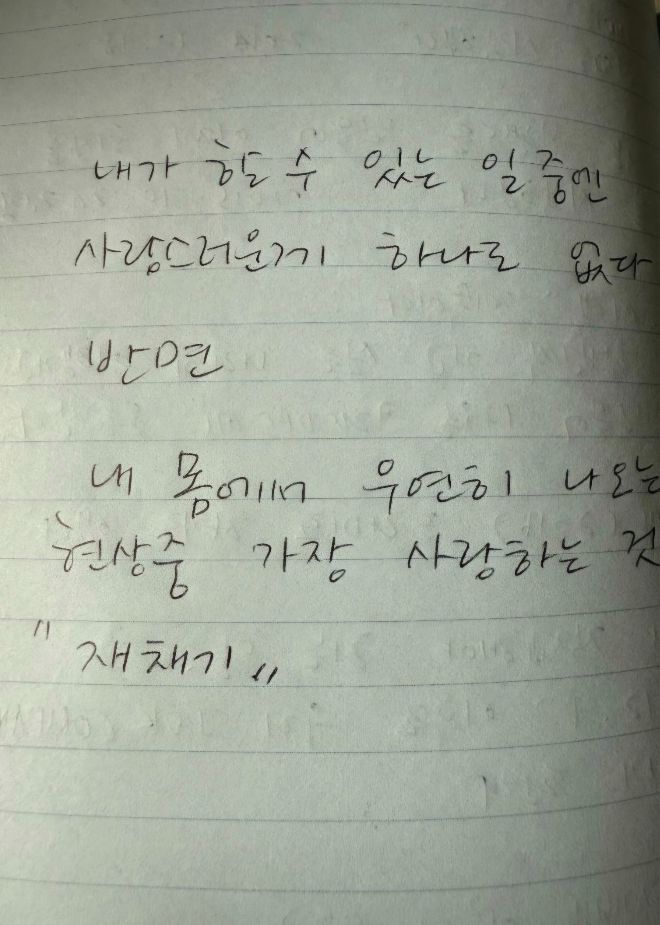 내가 할 수 있는 일 중엔
사랑스러운게 하나도 없다
반면
내 몸에서 우연히 나오는
현상중 가장 사랑하는 것
"재채기"